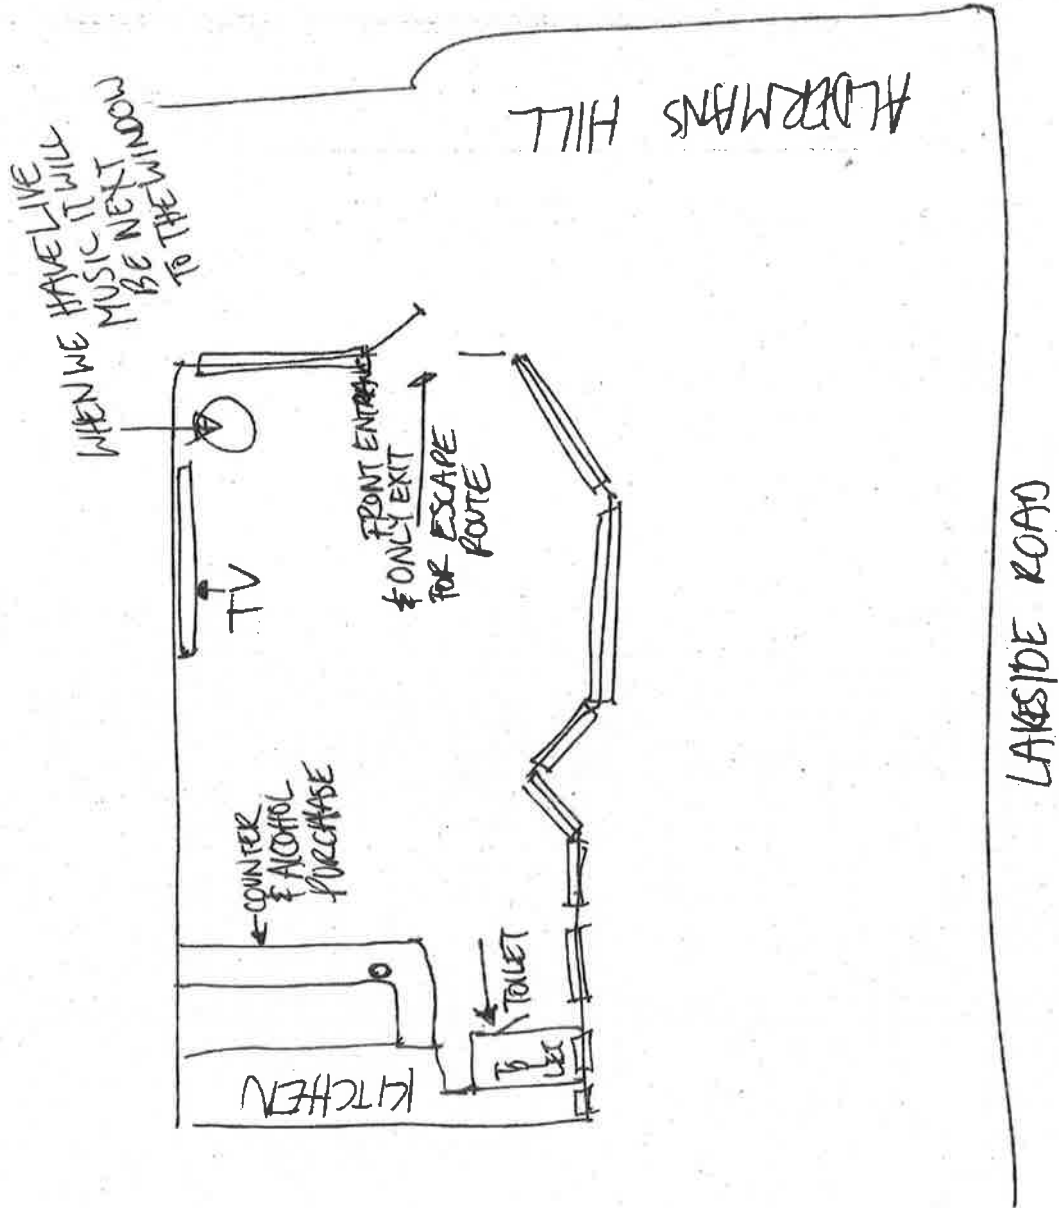 WHEN WE HAVE LIVE
MUSIC IT WILL
BE NEXT
TO THE WINDOW
ALDERMANS HILL
FRONT ENTRANCE
& ONLY EXIT
FOR ESCAPE
ROUTE
TV
COUNTER
& ALCOHOL
PURCHASE
TOILET
TO
LET
KITCHEN
LAKESIDE ROAD